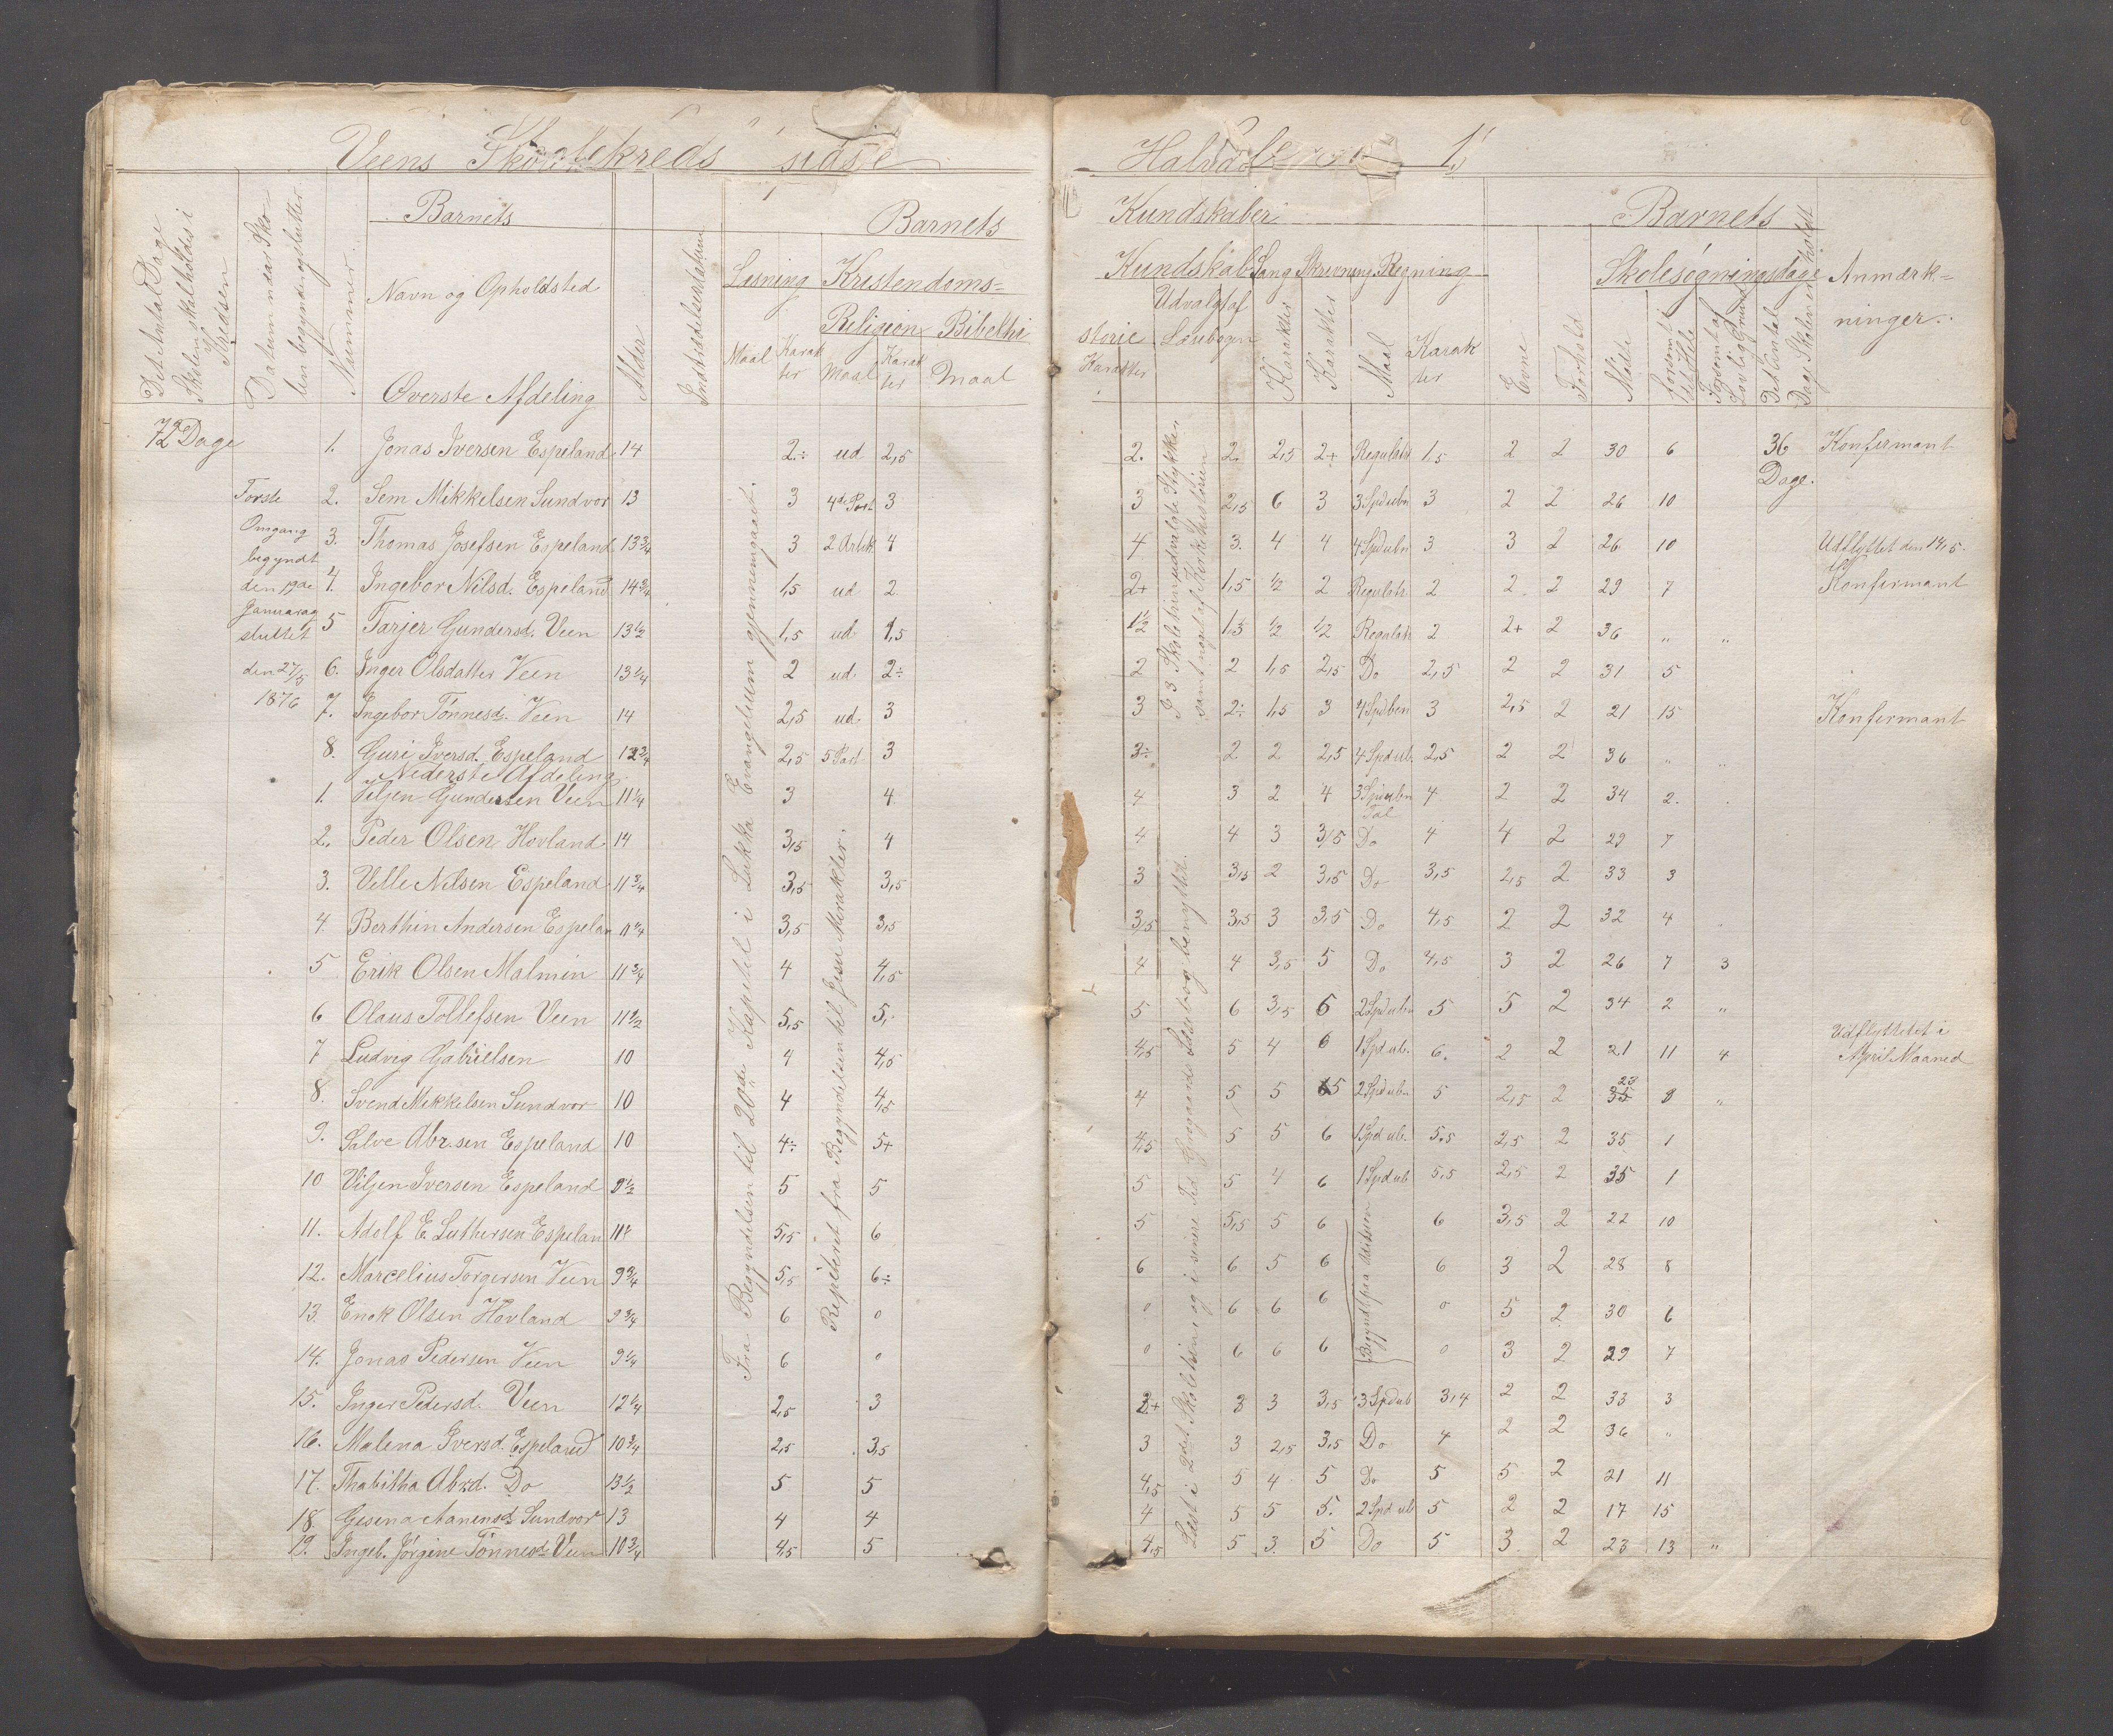 Veens Skolekreds sidste Halvaar 1
Det Antal Dage Skolen skal holdes i Kredsen
Datum naar Skolen begynder og slutter
Nummer
Barnets
Navn og Opholdsted
Øverste Afdeling
Alder
Indtrædelsesdatum
Barnets Kundskaber
Læsning Kristendoms= Kundskab Sang Skrivning Regning
Religion Bibelhi storie Udvalgt af Læsebogen
Maal Karakter Maal Karakter Maal Karakter Karakter Karakter Maal Karakter
Evne Forhold
Barnets
Skolesøgningsdage
Mødte Forsømt i det Hele Forsømt af Lovlig Grund Det Antal Dage Skolen er holdt
Anmærk= ninger.
72 Dage
Første Omgang begyndt den 19de Januar og sluttet den 27/5 1876
1. Jonas Iversen Espeland 14 2.÷ ud 2,5 2. 2. 2,5 2+ Regulatr 1,5 2 2 30 6 36 Dage. Konfirmant
2. Sem Mikkelsen Sundvor 13 3 4de Part 3 3 2,5 6 3 3 Spdubn 3 2 2 26 10
3. Thomas Josefsen Espeland 13 3/4 3 2 Artik 4 4 3. 4 4 4 Spdubn 3 3 2 26 10 Udflyttet den 14/5.
4. Ingebor Nilsd. Espeland 14 3/4 1,5 ud 2 2+ 1,5 1/2 2 Regulatr 2 2 2 29 7 Konfirmant
5 Tarjer Gundersd. Veen 13 1/2 1,5 ud 1,5 1 1/2 1,5 1/2 1/2 Regulatr 2 2+ 2 36 " "
6. Inger Olsdatter Veen 13 1/4 2 ud. 2÷ 2 2 1,5 2,5 Do 2,5 2 2 31 5
7. Ingebor Tønnesd. Veen 14 2,5 ud. 3 3 2÷ 1,5 3 4 Spdben 3 2,5 2 21 15 Konfirmant
8. Guri Iversd. Espeland 12 3/4 2,5 5 Part 3 3÷ 2 2 2,5 4 Spdub. 2,5 2 2 36 " "
Nederste Afdeling
1. Viljen Gundersen Veen 11 1/4 3 4 4 3 2 4 3 Spdubn Tal 4 2 2 34 2.
2. Peder Olsen Hovland 14 3,5 4 4 4 3 3,5 Do 4 4 2 29 7
3. Velle Nilsen Espeland 11 3/4 3,5 3,5 3 3,5 2 3,5 Do 3,5 2,5 2 33 3
4. Berthin Andersen Espelan 11 1/4 3,5 3,5 3,5 3,5 3 3,5 Do 4,5 2 2 32 4
5 Erik Olsen Malmin 11 3/4 4 4,5 4 4 3,5 5 Do 4,5 3 2 26 7 3
6 Olaus Tollefsen Veen 11 1/2 5,5 5, 5 6 3,5 6 2 Spdubn 5 5 2 34 2 "
7 Ludvig Gabrielsen 10 4 4,5 4,5 5 4 6 1 Spdub. 6. 2 2 21 11 4 Udflyttetet i April Maaned
8. Svend Mikkelsen Sundvor 10 4 4,5 4 5 5 5 2 Spdubn 5 2,5 2 23 35 8 "
9. Salve Abr.sen Espeland 10 4÷ 5+ 4,5 5 5 6 1 Spd ub. 5,5 2,5 2 35 1
10 Viljen Iversen Espeland 9 1/2 5 5 5 5 4 6 1 Spdub 5,5 2,5 2 35 1
11. Adolf E. Luthersen Espelan 11 5,5 6 5 5,5 5 6 6 3,5 2 22 10
12. Marcelius Torgersen Veen 9 3/4 5,5 6÷ 6 6 5 6 6 3 2 28 8
13. Enok Olsen Hovland 9 3/4 6 0 0 6 6 6 0 5 2 30 6
14. Jonas Pedersen Veen 9 1/4 6 0 0 6 6 6 0 3 2 29 7
15. Inger Pedersd. Veen 12 1/4 2,5 3 3+ 3 3 3,5 3 Spdub 3,4 2 2 33 3
16. Malena Iversd. Espeland 10 3/4 2,5 3,5 3 3 2,5 3,5 Do 4 2 2 36 "
17. Thabitha Abrd. Do 13 1/2 5 5 4,5 5 4 5 Do 5 5 2 21 11
18. Gesena Aanensd Sundvor 13 4 4 4 5 5 5. 2 Spd ub 5 2 2 17 15
19. Ingeb. Jørgine Tønnesd Veen 10 3/4 4,5 5 4,5 5 3. 5 Do 5 3 2 23 13 "
Fra Begyndelsen til 20de Kapitel i Lukka Evangelium gjennemgaaet.
Repeteret fra Begyndelsen til Jesu Mirakler.
I 3 Skoletrin udvalgte Stykker samt noget af Kirkehistorien
Læst i 2det Skoletrin og i senere Tid Jensens Læsebog benyttet.
Begyndt paa Adision